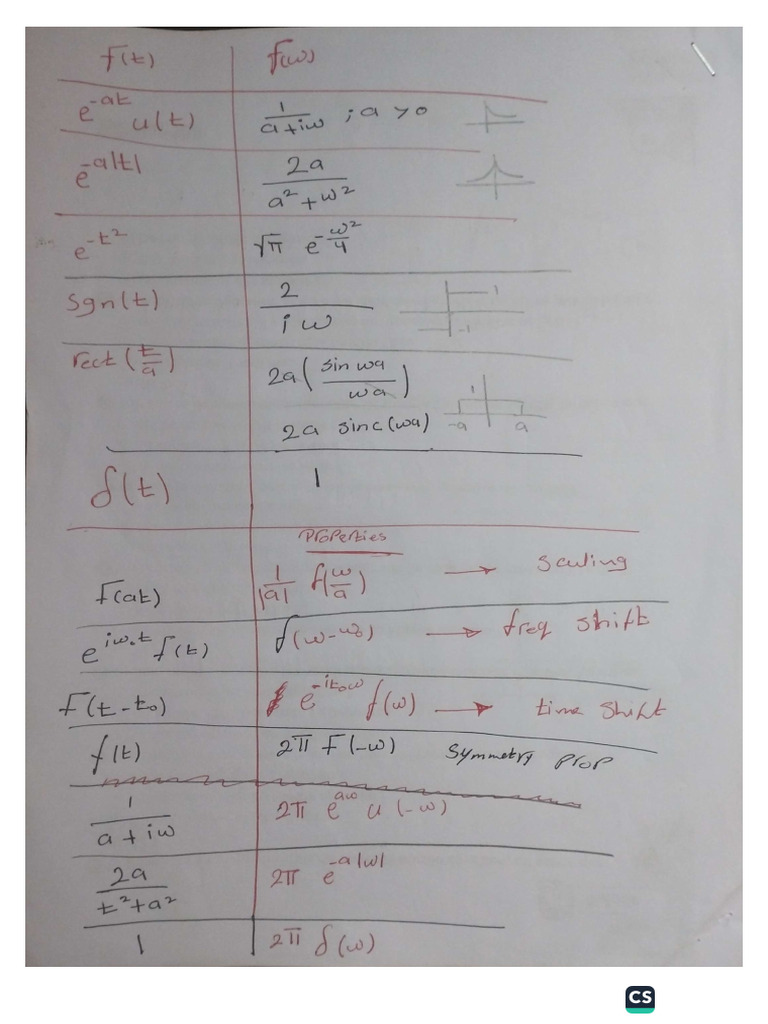 F(t) f(ω)
e^-at u(t) 1/(a+iω) ; a > 0
e^-a|t| 2a/(a²+ω²)
e^-t² √π e^-ω²/4
Sgn(t) 2/(iω) 1 -1
rect(t/a) 2a(sin ωa/ωa) 1
2a sinc(ωa) -a a
δ(t) 1
Properties
F(at) 1/|a| f(ω/a) → scaling
e^iω₀t f(t) f(ω-ω₀) → freq shift
F(t-t₀) e^-it₀ω f(ω) → time shift
f(t) 2π F(-ω) Symmetry prop
1/(a+iω) 2π e^aω u(-ω)
2a/(t²+a²) 2π e^-a|ω|
1 2π δ(ω)
CS